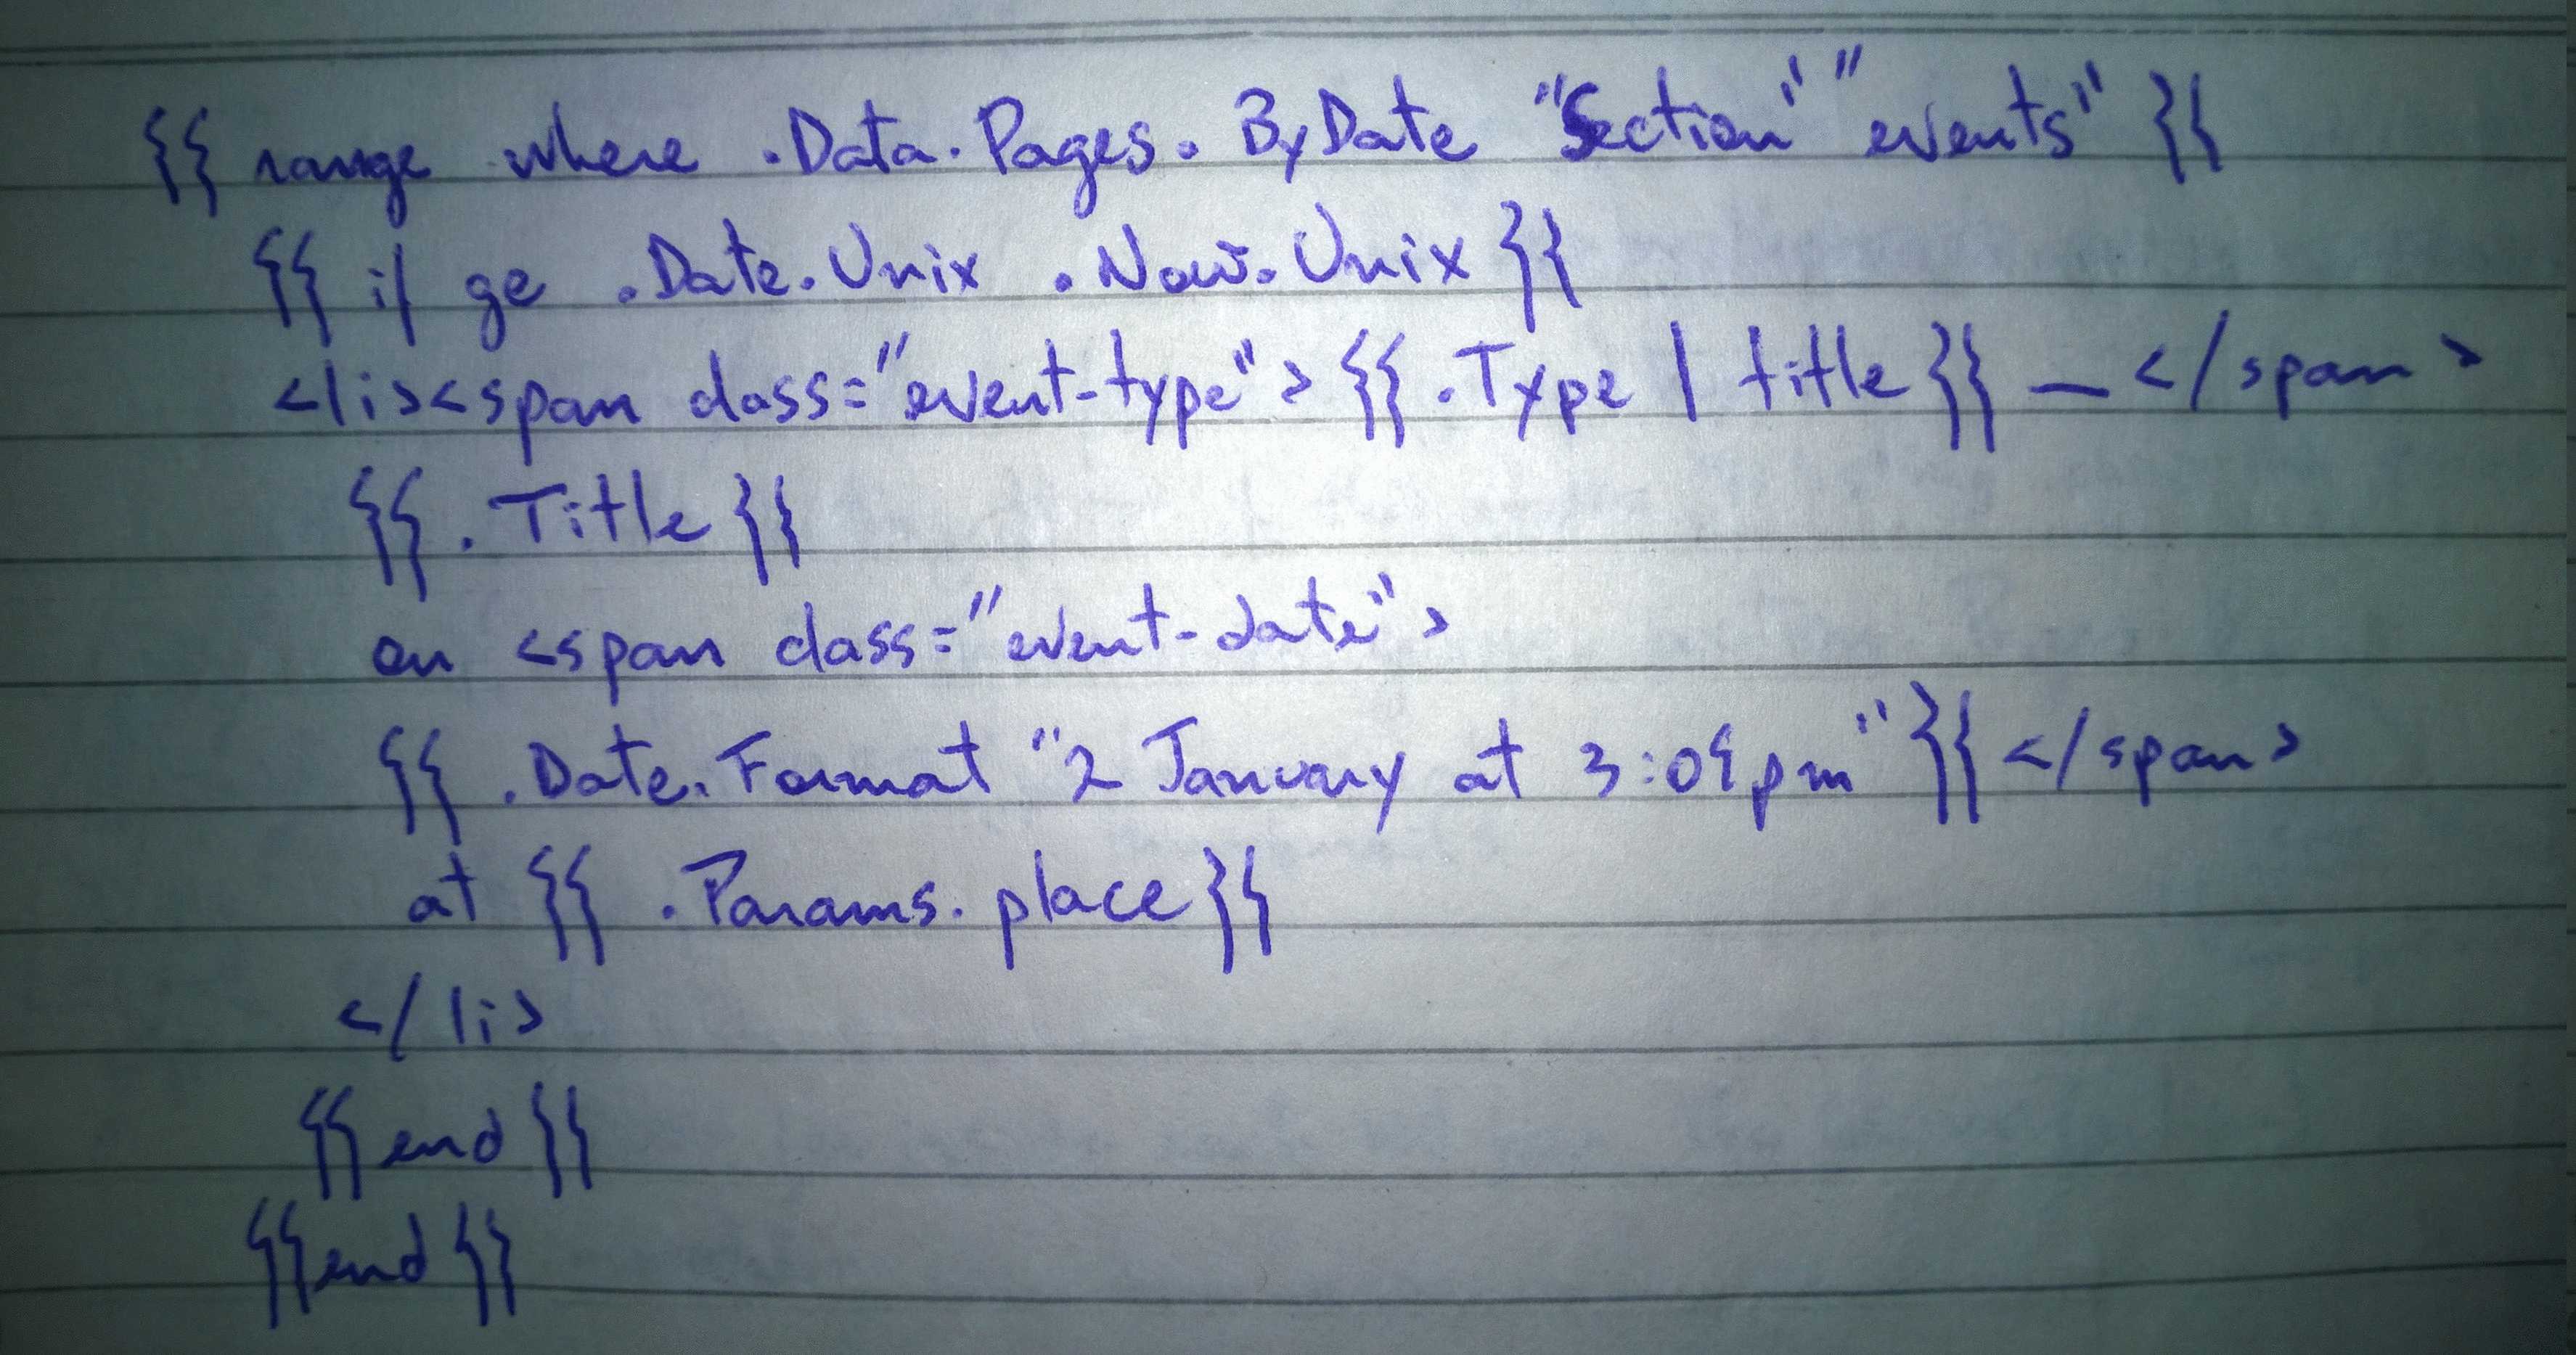 {{ range where .Data.Pages.ByDate "Section" "events" }}
{{ if ge .Date.Unix .Now.Unix }}
<li><span class="event-type">{{ .Type | title }} — </span>
{{ .Title }}
on <span class="event-date">
{{ .Date.Format "2 January at 3:04pm" }}</span>
at {{ .Params.place }}
</li>
{{ end }}
{{ end }}